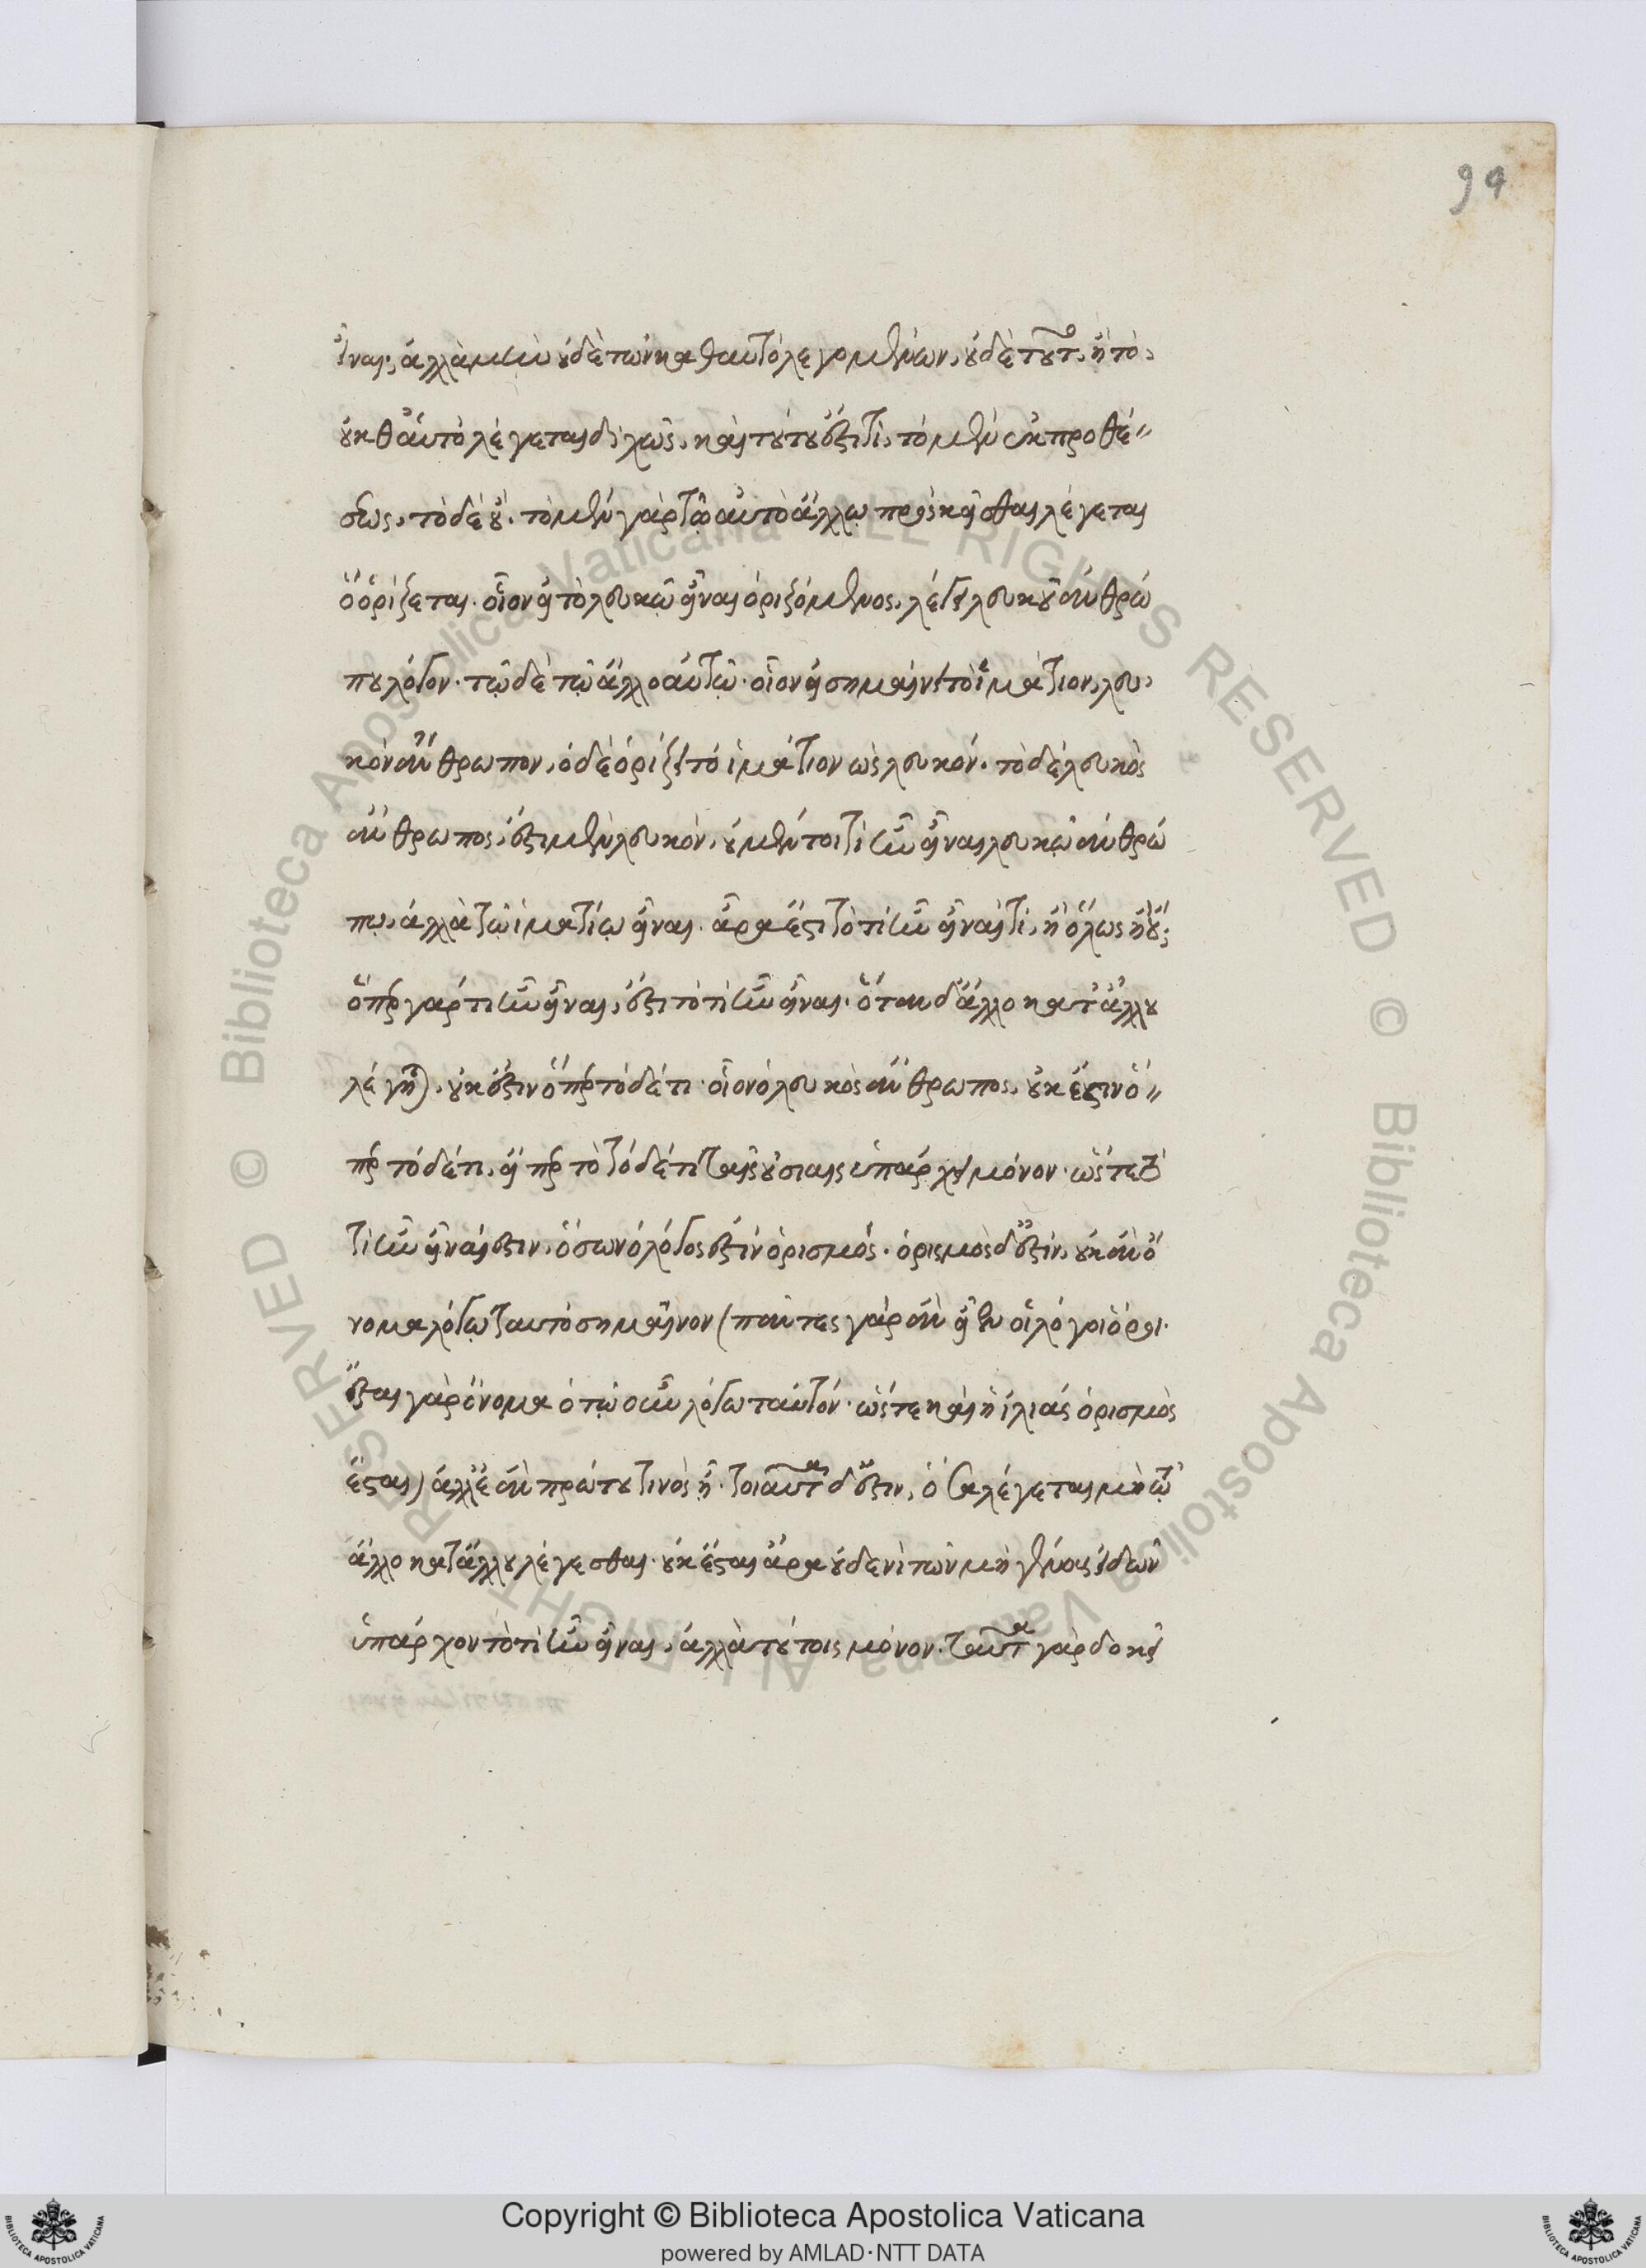 94
εἶναι, ἀλλὰ μὴν οὐδὲ τῶν καθ' αὑτὸ λεγομένων, οὐδὲ τοῦτο, ἢ τὸ,
οὐ καθ' αὑτὸ λέγεται διχῶς, καὶ τούτου ἐστὶ τὶ, τὸ μὲν ἐκ προθέ-
σεως, τὸ δὲ οὔ. τὸ μὲν γὰρ τῷ αὐτὸ ἄλλῳ προσκεῖσθαι λέγεται
ὃ ὁρίζεται. οἷον εἰ τὸ λευκῷ εἶναι ὁριζόμενος, λέγει λευκοῦ ἀνθρώ
που λόγον. τῷ δὲ τῷ ἄλλο αὐτῷ. οἷον εἰ σημαίνει τὸ ἱμάτιον, λευ,
κὸν ἄνθρωπον, ὁ δὲ ὁρίζει τὸ ἱμάτιον ὡς λευκόν. τὸ δὲ λευκὸς
ἄνθρωπος, ἔστι μὲν λευκὸν, οὐ μέντοι τὶ ἦν εἶναι λευκῷ ἀνθρώ
πῳ, ἀλλὰ τῷ ἱματίῳ εἶναι. ἆρα ἔστι τὸ τί ἦν εἶναί τι, ἢ ὅλως ἢ οὔ;
ὅπερ γάρ τι ἦν εἶναι, ἐστὶ τὸ τὶ ἦν εἶναι. ὅταν δ' ἄλλο κατ' ἄλλου
λέγηται, οὐκ ἔστιν ὅπερ τόδέ τι. οἷον ὁ λευκὸς ἄνθρωπος, οὐκ ἔστιν ὅ-
περ τόδέ τι, εἴπερ τὸ τόδέ τι ταῖς οὐσίαις ὑπάρχει μόνον. ὥστε τὸ
τὶ ἦν εἶναί ἐστιν, ὅσων ὁ λόγος ἐστὶν ὁρισμός. ὁρισμὸς δ' ἐστὶν, οὐκ ἂν ὄ
νομα λόγῳ ταυτὸ σημαῖνον (πάντες γὰρ ἂν εἶεν οἱ λόγοι ὅροι.
ἔσται γὰρ ὄνομα ὁτῳοῦν λόγῳ ταὐτόν. ὥστε καὶ ἡ ἰλιὰς ὁρισμὸς
ἔσται) ἀλλ' ἐὰν πρώτου τινὸς ᾖ. τοιαῦτα δ' ἐστὶν, ὅσα λέγεται μὴ τῷ
ἄλλο κατ' ἄλλου λέγεσθαι. οὐκ ἔσται ἄρα οὐδενὶ τῶν μὴ γένους εἰδῶν
ὑπάρχον τὸ τὶ ἦν εἶναι, ἀλλὰ τούτοις μόνον. ταῦτα γὰρ δοκεῖ
© Biblioteca Apostolica Vaticana ALL RIGHTS RESERVED
© Biblioteca Apostolica Vaticana ALL RIGHTS RESERVED
Copyright © Biblioteca Apostolica Vaticana
powered by AMLAD·NTT DATA
BIBLIOTECA APOSTOLICA VATICANA
BIBLIOTECA APOSTOLICA VATICANA